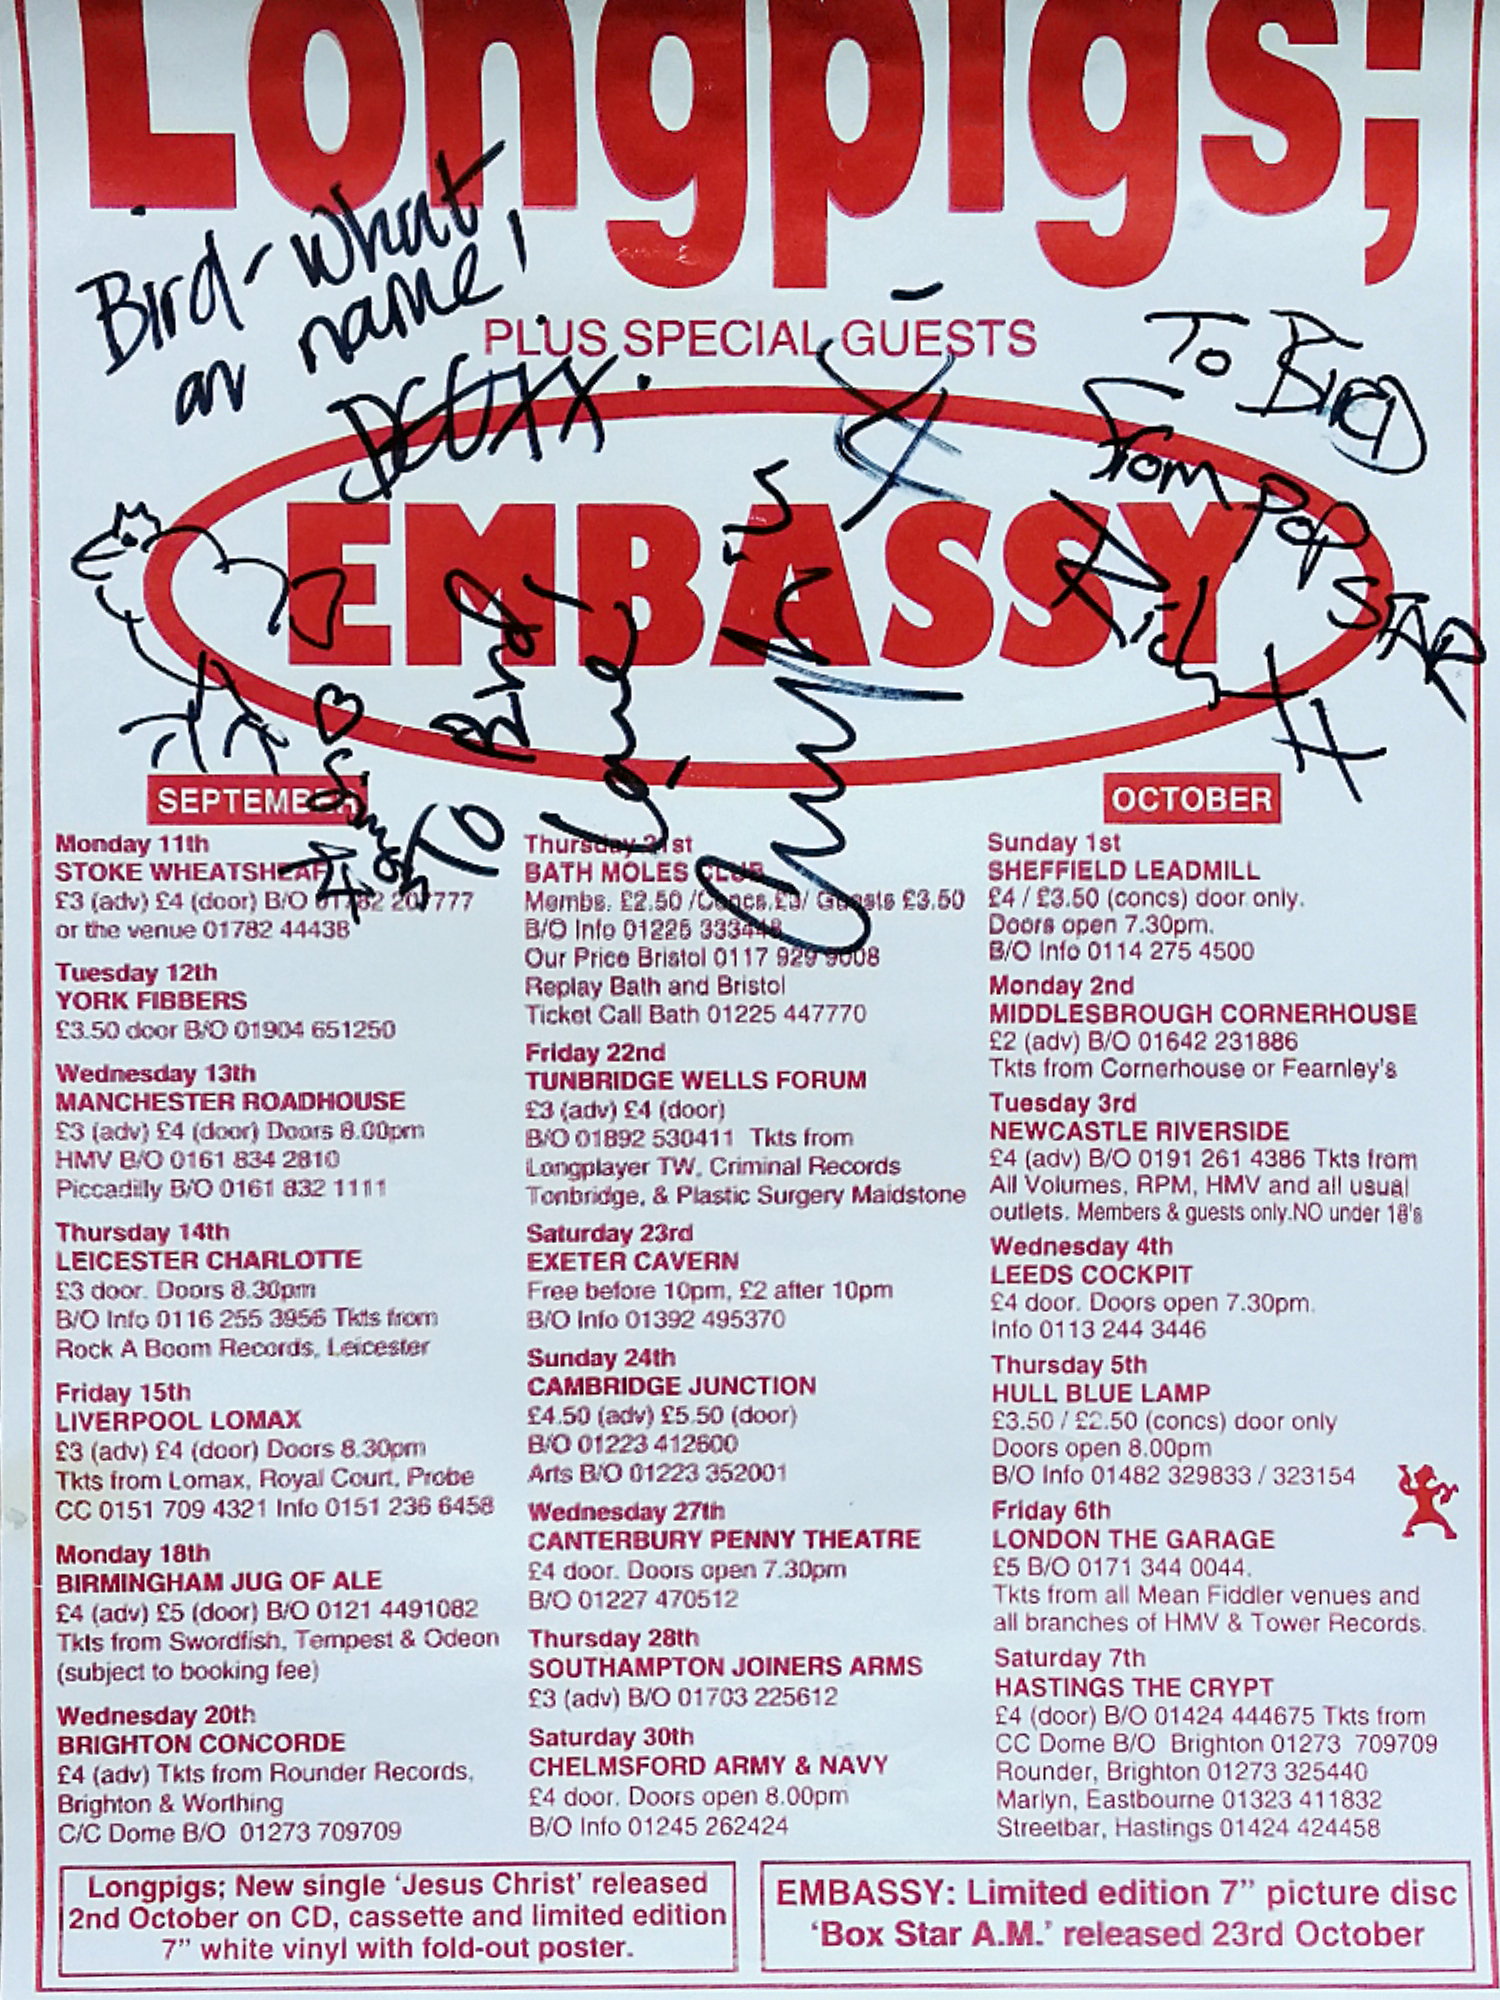 Longpigs;
Bird - What
an name!
PLUS SPECIAL GUESTS
To BIRD
From POP STAR
Rich XX
EMBASSY
To Bird
Love
SEPTEMBER
Monday 11th
STOKE WHEATSHEAF
£3 (adv) £4 (door) B/O 01782 207777
or the venue 01782 44438
Tuesday 12th
YORK FIBBERS
£3.50 door B/O 01904 651250
Wednesday 13th
MANCHESTER ROADHOUSE
£3 (adv) £4 (door) Doors 8.00pm
HMV B/O 0161 834 2810
Piccadilly B/O 0161 832 1111
Thursday 14th
LEICESTER CHARLOTTE
£3 door. Doors 8.30pm
B/O Info 0116 255 3956 Tkts from
Rock A Boom Records, Leicester
Friday 15th
LIVERPOOL LOMAX
£3 (adv) £4 (door) Doors 8.30pm
Tkts from Lomax, Royal Court, Probe
CC 0151 709 4321 Info 0151 236 6458
Monday 18th
BIRMINGHAM JUG OF ALE
£4 (adv) £5 (door) B/O 0121 4491082
Tkts from Swordfish, Tempest & Odeon
(subject to booking fee)
Wednesday 20th
BRIGHTON CONCORDE
£4 (adv) Tkts from Rounder Records,
Brighton & Worthing
C/C Dome B/O 01273 709709
Thursday 21st
BATH MOLES CLUB
Membs. £2.50 /Concs.£3/ Guests £3.50
B/O Info 01225 333448
Our Price Bristol 0117 929 9008
Replay Bath and Bristol
Ticket Call Bath 01225 447770
Friday 22nd
TUNBRIDGE WELLS FORUM
£3 (adv) £4 (door)
B/O 01892 530411 Tkts from
Longplayer TW, Criminal Records
Tonbridge, & Plastic Surgery Maidstone
Saturday 23rd
EXETER CAVERN
Free before 10pm, £2 after 10pm
B/O Info 01392 495370
Sunday 24th
CAMBRIDGE JUNCTION
£4.50 (adv) £5.50 (door)
B/O 01223 412600
Arts B/O 01223 352001
Wednesday 27th
CANTERBURY PENNY THEATRE
£4 door. Doors open 7.30pm
B/O 01227 470512
Thursday 28th
SOUTHAMPTON JOINERS ARMS
£3 (adv) B/O 01703 225612
Saturday 30th
CHELMSFORD ARMY & NAVY
£4 door. Doors open 8.00pm
B/O Info 01245 262424
OCTOBER
Sunday 1st
SHEFFIELD LEADMILL
£4 / £3.50 (concs) door only.
Doors open 7.30pm.
B/O Info 0114 275 4500
Monday 2nd
MIDDLESBROUGH CORNERHOUSE
£2 (adv) B/O 01642 231886
Tkts from Cornerhouse or Fearnley's
Tuesday 3rd
NEWCASTLE RIVERSIDE
£4 (adv) B/O 0191 261 4386 Tkts from
All Volumes, RPM, HMV and all usual
outlets. Members & guests only.NO under 18's
Wednesday 4th
LEEDS COCKPIT
£4 door. Doors open 7.30pm.
Info 0113 244 3446
Thursday 5th
HULL BLUE LAMP
£3.50 / £2.50 (concs) door only
Doors open 8.00pm
B/O Info 01482 329833 / 323154
Friday 6th
LONDON THE GARAGE
£5 B/O 0171 344 0044.
Tkts from all Mean Fiddler venues and
all branches of HMV & Tower Records.
Saturday 7th
HASTINGS THE CRYPT
£4 (door) B/O 01424 444675 Tkts from
CC Dome B/O Brighton 01273 709709
Rounder, Brighton 01273 325440
Marlyn, Eastbourne 01323 411832
Streetbar, Hastings 01424 424458
Longpigs; New single 'Jesus Christ' released
2nd October on CD, cassette and limited edition
7" white vinyl with fold-out poster.
EMBASSY: Limited edition 7" picture disc
'Box Star A.M.' released 23rd October